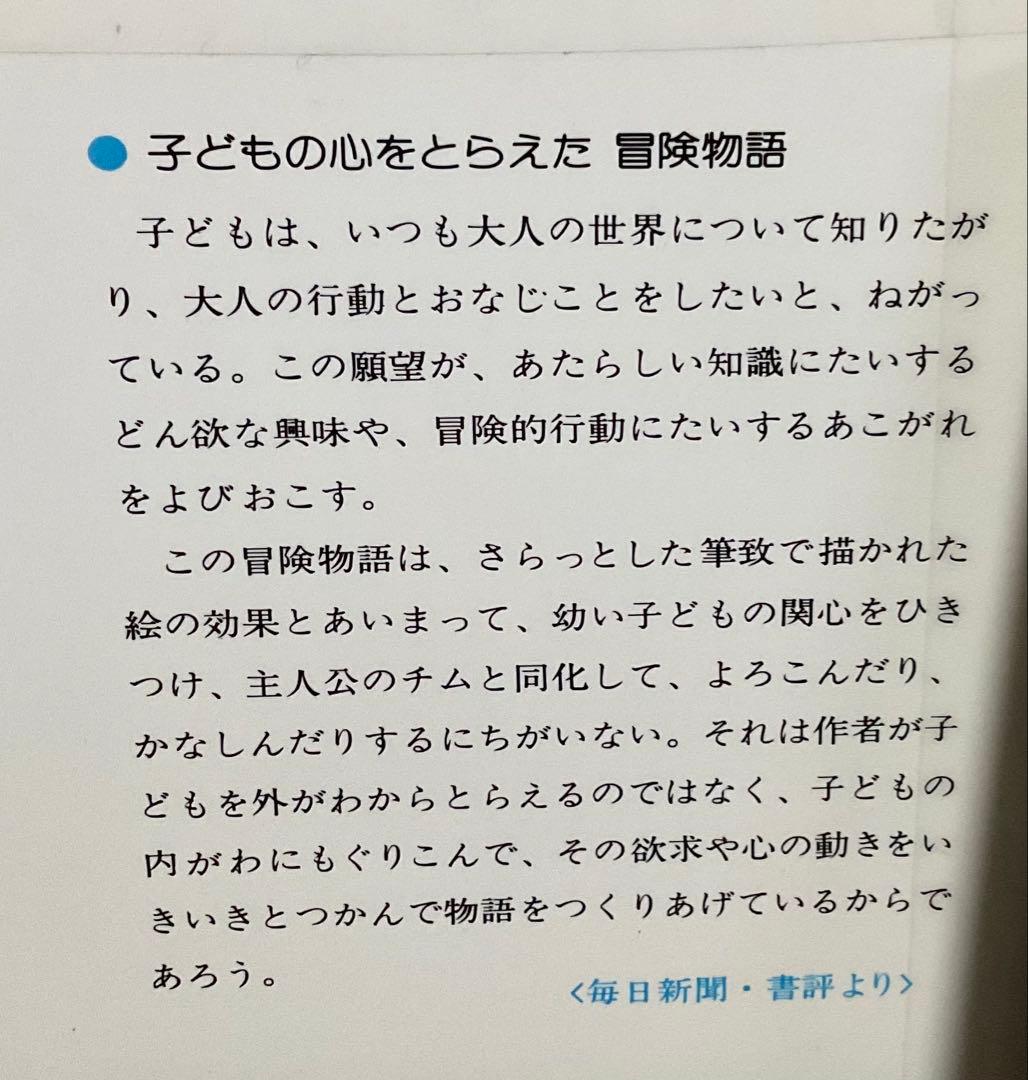 ● 子どもの心をとらえた 冒険物語
子どもは、いつも大人の世界について知りたが
り、大人の行動とおなじことをしたいと、ねがっ
ている。この願望が、あたらしい知識にたいする
どん欲な興味や、冒険的行動にたいするあこがれ
をよびおこす。
この冒険物語は、さらっとした筆致で描かれた
絵の効果とあいまって、幼い子どもの関心をひき
つけ、主人公のチムと同化して、よろこんだり、
かなしんだりするにちがいない。それは作者が子
どもを外がわからとらえるのではなく、子どもの
内がわにもぐりこんで、その欲求や心の動きをい
きいきとつかんで物語をつくりあげているからで
あろう。
〈毎日新聞・書評より〉